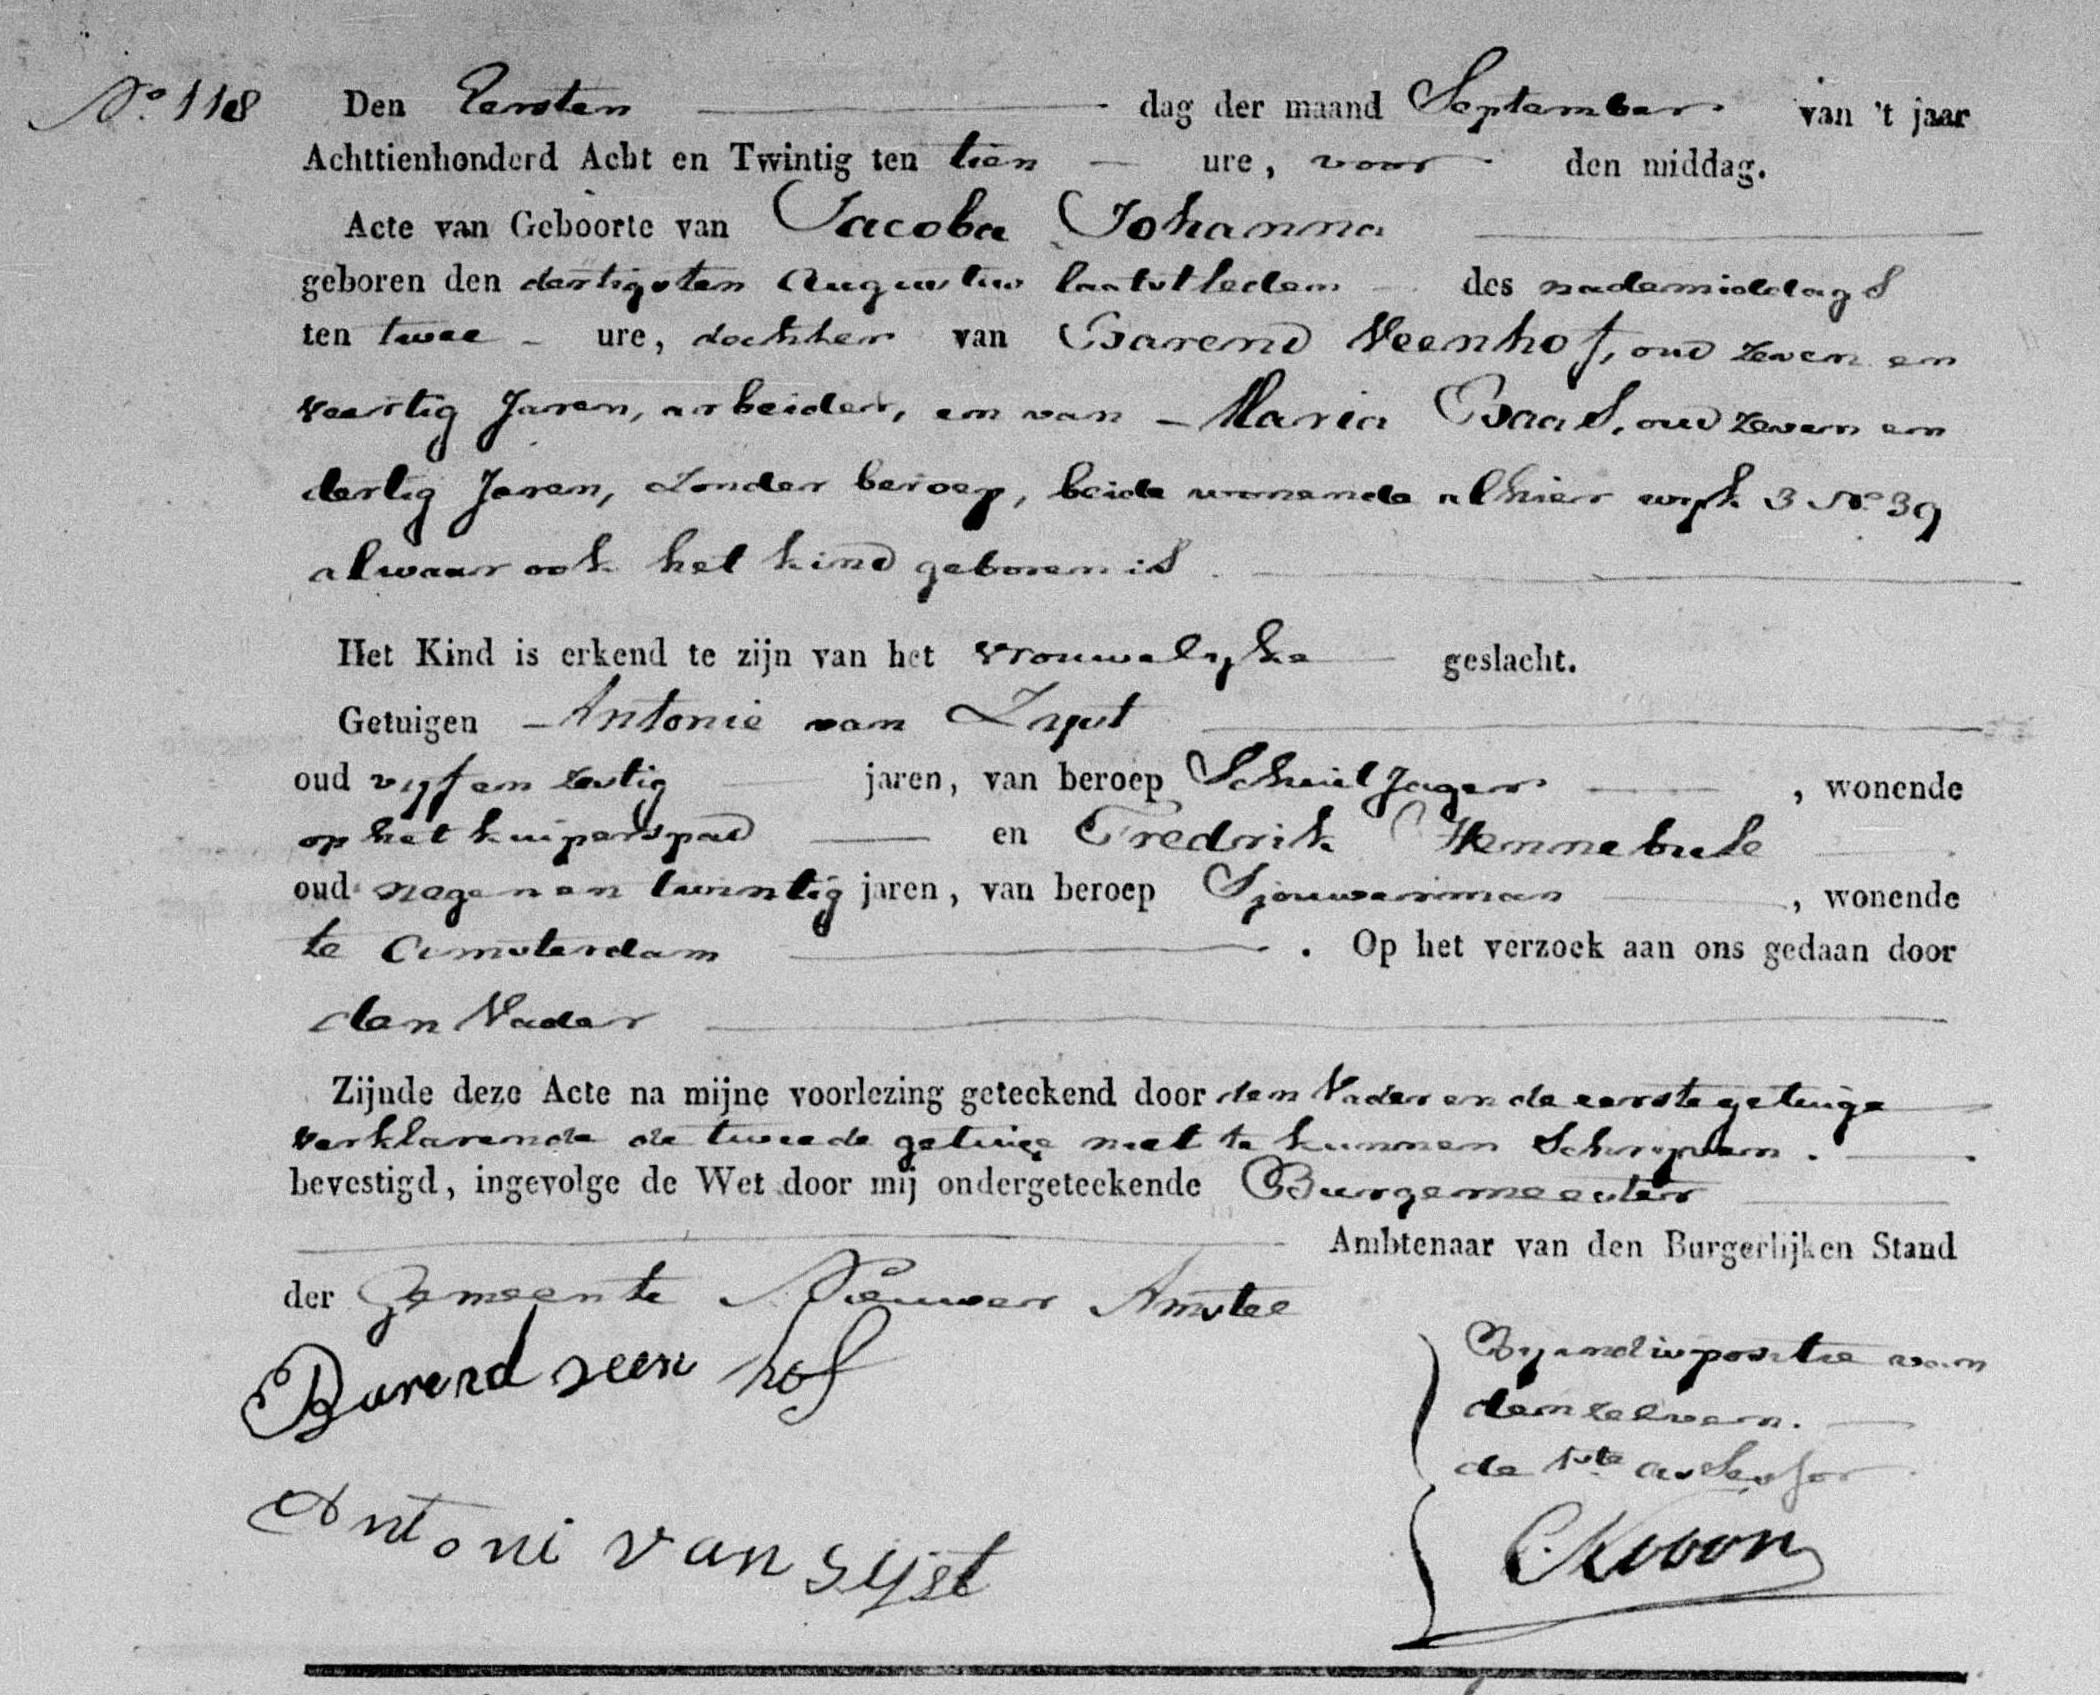 No. 118 Den Eersten dag der maand September van 't jaar
Achttienhonderd Acht en Twintig ten tien ure, voor den middag.
Acte van Geboorte van Jacoba Johanna
geboren den dertigsten Augustus laatstleden des nademiddags
ten twee ure, dochter van Barend Veenhof, oud zeven en
veertig Jaren, arbeider, en van Maria Baas, oud zeven en
dertig Jaren, zonder beroep, beide wonende alhier wyk 3 No 39
alwaar ook het kind geboren is
Het Kind is erkend te zijn van het vrouwelyke geslacht.
Getuigen Antonie van Zyst
oud vyf en zestig jaren, van beroep Schuit Jager, wonende
op het kuiperspad en Fredrik Hennebule
oud negen en twintig jaren, van beroep Sjouwerman, wonende
te Amsterdam. Op het verzoek aan ons gedaan door
den Vader
Zijnde deze Acte na mijne voorlezing geteekend door den Vader en de eerste getuige
verklarende de tweede getuige niet te kunnen Schryven.
bevestigd, ingevolge de Wet door mij ondergeteekende Burgemeester
Ambtenaar van den Burgerlijken Stand
der Gemeente Nieuwer Amstel
Barend veen hof
By indispositie van
denzelven.
de 1ste assessor
Antoni van Syst
C. Kroon